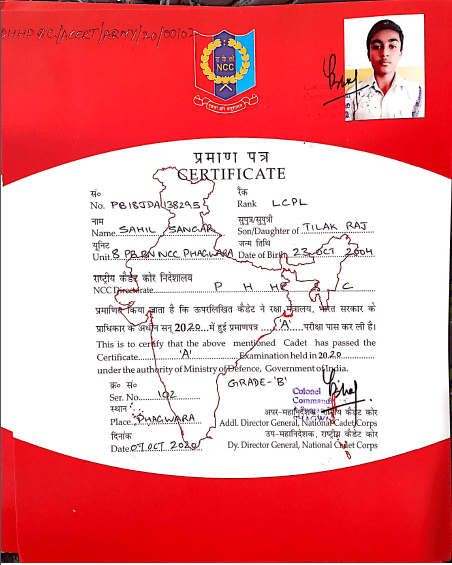 PHHP&C/ACERT/ARMY/20/0010
रा.कै.को
NCC
प्रमाण पत्र
CERTIFICATE
सं०
No. PB18JDA138295
रैंक
Rank LCPL
नाम
Name. SAHIL SANGAR
सुपुत्र/सुपुत्री
Son/Daughter of TILAK RAJ
यूनिट
Unit. 8 PB BN NCC PHAGWARA
जन्म तिथि
Date of Birth 23 OCT 2004
राष्ट्रीय कैडेट कोर निदेशालय
NCC Directorate P H HP & C
प्रमाणित किया जाता है कि ऊपरलिखित कैडेट ने रक्षा मंत्रालय, भारत सरकार के
प्राधिकार के अधीन सन् 2020 में हुई प्रमाणपत्र 'A' परीक्षा पास कर ली है।
This is to certify that the above mentioned Cadet has passed the
Certificate 'A' Examination held in 2020
under the authority of Ministry of Defence, Government of India.
GRADE-'B'
क्र० सं०
Ser. No. 102
Colonel
Command
स्थान
Place. PHAGWARA
अपर-महानिदेशक, राष्ट्रीय कैडेट कोर
Addl. Director General, National Cadet Corps
दिनांक
Date 07 OCT 2020
उप-महानिदेशक, राष्ट्रीय कैडेट कोर
Dy. Director General, National Cadet Corps